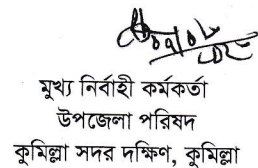 মুখ্য নির্বাহী কর্মকর্তা
উপজেলা পরিষদ
কুমিল্লা সদর দক্ষিণ, কুমিল্লা